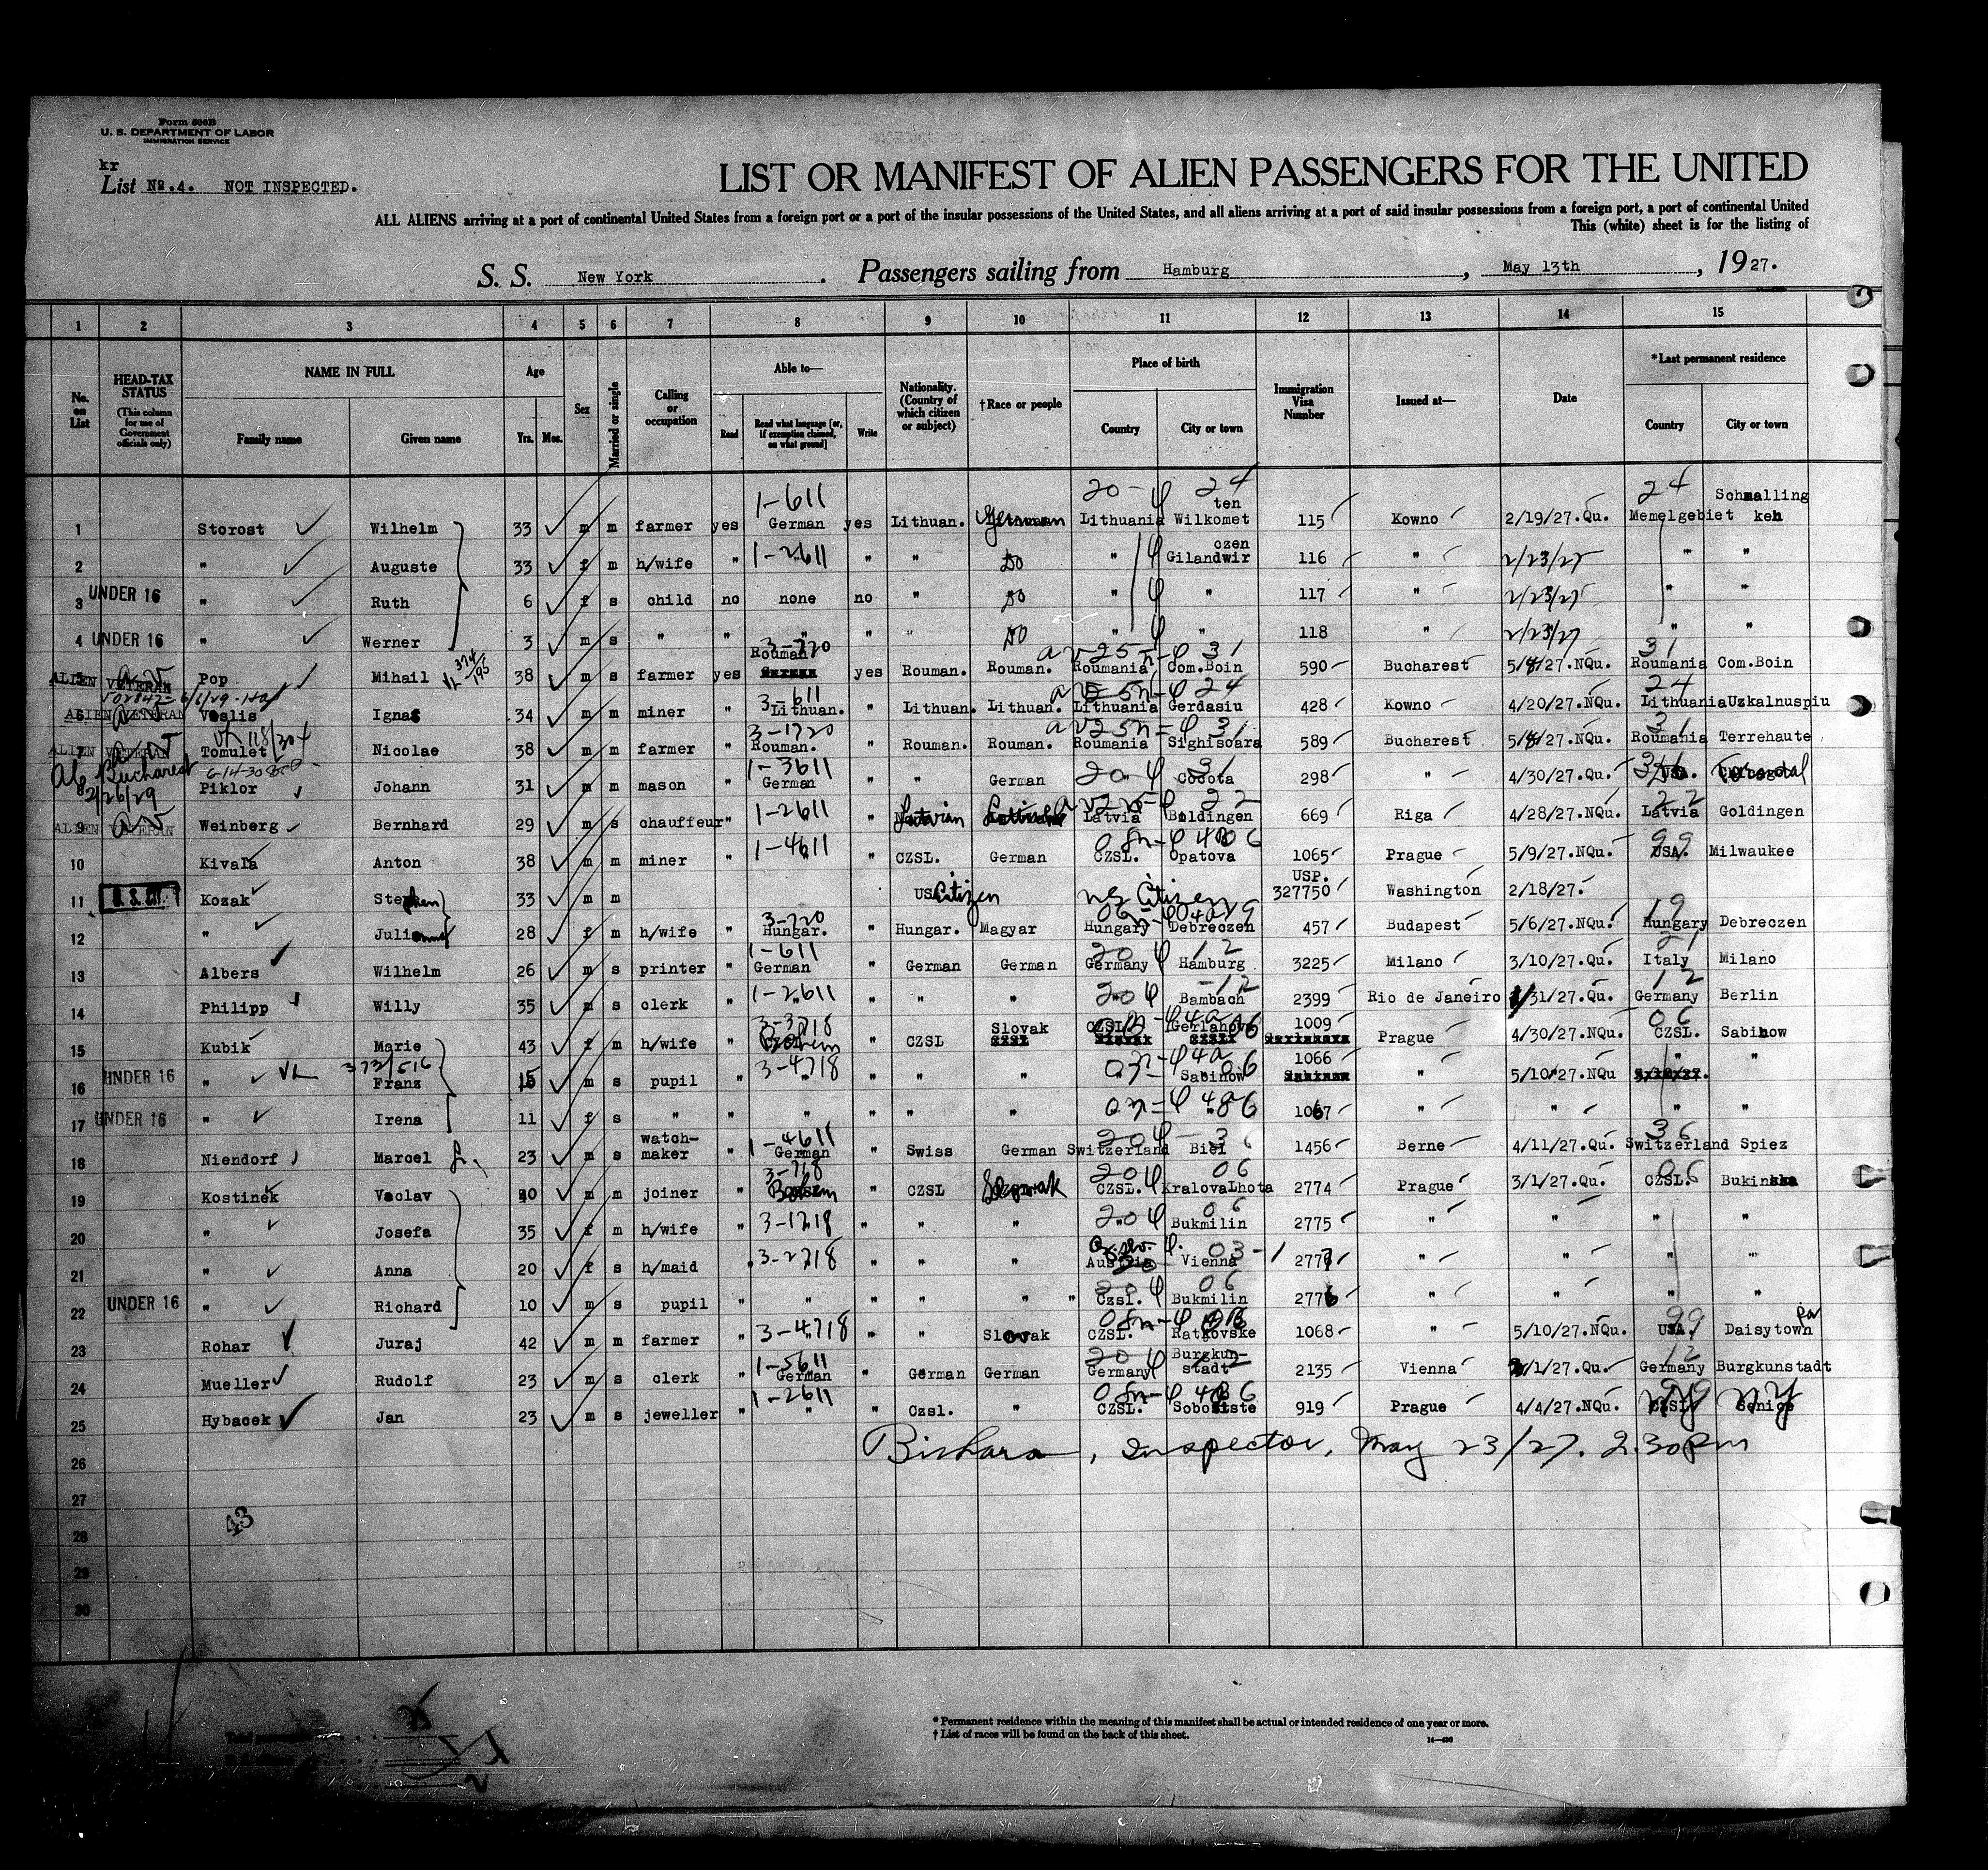 Form 500B
U. S. DEPARTMENT OF LABOR
IMMIGRATION SERVICE
kr
List No.4. NOT INSPECTED.
LIST OR MANIFEST OF ALIEN PASSENGERS FOR THE UNITED
ALL ALIENS arriving at a port of continental United States from a foreign port or a port of the insular possessions of the United States, and all aliens arriving at a port of said insular possessions from a foreign port, a port of continental United
This (white) sheet is for the listing of
S. S. New York. Passengers sailing from Hamburg, May 13th, 1927.
1 2 3 4 5 6 7 8 9 10 11 12 13 14 15
No. on List
HEAD-TAX STATUS
(This column for use of Government officials only)
NAME IN FULL
Family name Given name
Age
Yrs. Mos.
Sex
Married or single
Calling or occupation
Able to—
Read
Read what language [or, if exemption claimed, on what ground]
Write
Nationality. (Country of which citizen or subject)
†Race or people
Place of birth
Country City or town
Immigration Visa Number
Issued at—
Date
*Last permanent residence
Country City or town
1 Storost Wilhelm 33 m m farmer yes 1-611 German yes Lithuan. German 20 24 Lithuania Wilkometten 115 Kowno 2/19/27.Qu. 24 Memelgebiet Schmallingken
2 " Auguste 33 f m h/wife " 1-2611 " " Do " Gilandwirczen 116 " 2/23/27 " "
3 UNDER 16 " Ruth 6 f s child no none no " Do " " 117 " 2/23/27 " "
4 UNDER 16 " Werner 3 m s " " " " " Do " 118 " 2/23/27 " "
5 ALIEN VETERAN Pop Mihail 38 m s farmer yes 3-720 Rouman. yes Rouman. Rouman. Roumania 31 Com.Boin 590 Bucharest 5/4/27.NQu. 31 Roumania Com.Boin
6 ALIEN VETERAN Voslis Ignas 34 m m miner " 3-611 Lithuan. " Lithuan. Lithuan. Lithuania 24 Gerdasiu 428 Kowno 4/20/27.NQu. 24 Lithuania Uzkalnuspiu
7 ALIEN VETERAN Tomulet Nicolae 38 m m farmer " 3-1720 Rouman. " Rouman. Rouman. Roumania 31 Sighisoara 589 Bucharest 5/4/27.NQu. 31 Roumania Terrehaute
Bucharest 2/26/29
8 Piklor Johann 31 m m mason " 1-3611 German " " German 20 31 298 " 4/30/27.Qu.
9 ALIEN VETERAN Weinberg Bernhard 29 m s chauffeur " 1-2611 " Latvian Latvia 22 Boldingen 669 Riga 4/28/27.NQu. 22 Latvia Goldingen
10 Kivala Anton 38 m m miner " 1-4611 " CZSL. German CZSL. Opatova 1065 Prague 5/9/27.NQu. 99 USA. Milwaukee
11 U.S.CIT. Kozak Stephen 33 m m US Citizen US Citizen USP. 327750 Washington 2/18/27.
12 " Julianna 28 f m h/wife " 3-720 Hungar. " Hungar. Magyar Hungary Debreczen 457 Budapest 5/6/27.NQu. 19 Hungary Debreczen
13 Albers Wilhelm 26 m s printer " 1-611 German " German German 20 12 Germany Hamburg 3225 Milano 3/10/27.Qu. 21 Italy Milano
14 Philipp Willy 35 m s clerk " 1-2611 " " " 20 12 Bambach 2399 Rio de Janeiro 1/31/27.Qu. 12 Germany Berlin
15 Kubik Marie 43 f m h/wife " 3-3718 " CZSL Slovak CZSL. Gerlahova 1009 Prague 4/30/27.NQu. 06 CZSL. Sabinow
16 UNDER 16 " 373/516 Franz 15 m s pupil " 3-4718 " " " Sabinow 06 1066 " 5/10/27.NQu " "
17 UNDER 16 " Irena 11 f s " " " " " " 1067 " " " "
18 Niendorf Marcel 23 m s watch-maker " 1-4611 German " Swiss German 20 36 Switzerland Biel 1456 Berne 4/11/27.Qu. 36 Switzerland Spiez
19 Kostinek Vaclav 40 m m joiner " 3-718 " CZSL 20 06 CZSL. KralovaLhota 2774 Prague 3/1/27.Qu. 06 CZSL.
20 " Josefa 35 f m h/wife " 3-1718 " " " 20 06 Bukmilin 2775 " " " "
21 " Anna 20 f s h/maid " 3-2718 " " " Austria 03 Vienna 2777 " " " "
22 UNDER 16 " Richard 10 m s pupil " " " " " 20 06 Czsl. Bukmilin 2776 " " " "
23 Rohar Juraj 42 m m farmer " 3-4718 " " Slovak CZSL. Ratkovske 1068 " 5/10/27.NQu. 99 USA. Daisytown Pa
24 Mueller Rudolf 23 m s clerk " 1-5611 German " German German 20 12 Germany Burgkun-stadt 2135 Vienna 2/1/27.Qu. 12 Germany Burgkunstadt
25 Hybacek Jan 23 m s jeweller " 1-2611 " " Czsl. " CZSL. Sobotiste 919 Prague 4/4/27.NQu. 99 NY NY
26 Bishara, Inspector, May 23/27. 2.30 PM
27
28
29
30
43
* Permanent residence within the meaning of this manifest shall be actual or intended residence of one year or more.
† List of races will be found on the back of this sheet.
14—430